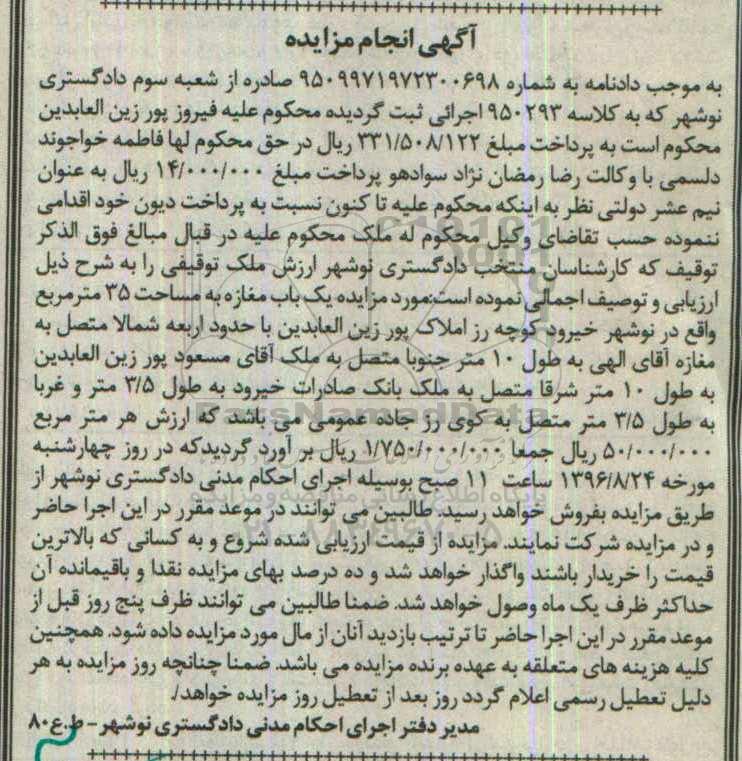 آگهی انجام مزایده
به موجب دادنامه به شماره ۹۵۰۹۹۷۱۹۷۲۳۰۰۶۹۸ صادره از شعبه سوم دادگستری
نوشهر که به کلاسه ۹۵۰۲۹۳ اجرائی ثبت گردیده محکوم علیه فیروز پور زین العابدین
محکوم است به پرداخت مبلغ ۳۳۱/۵۰۸/۱۲۲ ریال در حق محکوم لها فاطمه خواجوند
دلسمی با وکالت رضا رمضان نژاد سوادهو پرداخت مبلغ ۱۴/۰۰۰/۰۰۰ ریال به عنوان
نیم عشر دولتی نظر به اینکه محکوم علیه تا کنون نسبت به پرداخت دیون خود اقدامی
ننموده حسب تقاضای وکیل محکوم له ملک محکوم علیه در قبال مبالغ فوق الذکر
توقیف که کارشناسان منتخب دادگستری نوشهر ارزش ملک توقیفی را به شرح ذیل
ارزیابی و توصیف اجمالی نموده است:مورد مزایده یک باب مغازه به مساحت ۳۵ مترمربع
واقع در نوشهر خیرود کوچه رز املاک پور زین العابدین با حدود اربعه شمالا متصل به
مغازه آقای الهی به طول ۱۰ متر جنوبا متصل به ملک آقای مسعود پور زین العابدین
به طول ۱۰ متر شرقا متصل به ملک بانک صادرات خیرود به طول ۳/۵ متر و غربا
به طول ۳/۵ متر متصل به کوی رز جاده عمومی می باشد که ارزش هر متر مربع
۵۰/۰۰۰/۰۰۰ ریال جمعا ۱/۷۵۰/۰۰۰/۰۰۰ ریال بر آورد گردیدکه در روز چهارشنبه
مورخه ۱۳۹۶/۸/۲۴ ساعت ۱۱ صبح بوسیله اجرای احکام مدنی دادگستری نوشهر از
طریق مزایده بفروش خواهد رسید. طالبین می توانند در موعد مقرر در این اجرا حاضر
و در مزایده شرکت نمایند. مزایده از قیمت ارزیابی شده شروع و به کسانی که بالاترین
قیمت را خریدار باشند واگذار خواهد شد و ده درصد بهای مزایده نقدا و باقیمانده آن
حداکثر ظرف یک ماه وصول خواهد شد. ضمنا طالبین می توانند ظرف پنج روز قبل از
موعد مقرر در این اجرا حاضر تا ترتیب بازدید آنان از مال مورد مزایده داده شود. همچنین
کلیه هزینه های متعلقه به عهده برنده مزایده می باشد. ضمنا چنانچه روز مزایده به هر
دلیل تعطیل رسمی اعلام گردد روز بعد از تعطیل روز مزایده خواهد/.
مدیر دفتر اجرای احکام مدنی دادگستری نوشهر - ط.ع۸۰
ParsNamadData